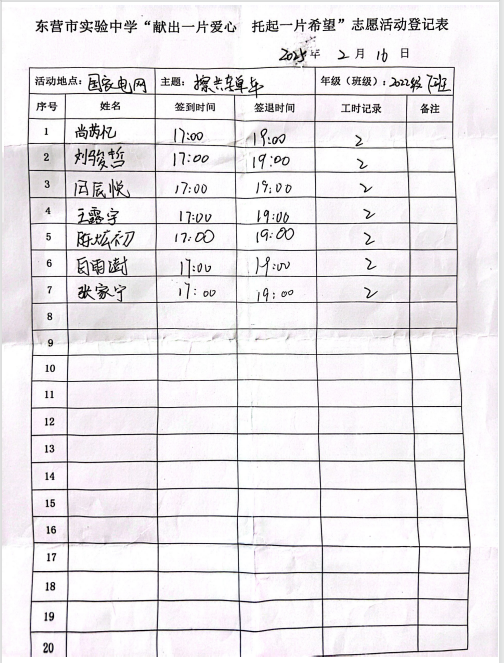 东营市实验中学“献出一片爱心 托起一片希望”志愿活动登记表
2025年 2月 16日
活动地点：国家电网 主题：擦共享单车 年级（班级）：2022级 班
序号 姓名 签到时间 签退时间 工时记录 备注
1 尚芮忆 17:00 19:00 2
2 刘骏哲 17:00 19:00 2
3 闫辰悦 17:00 19:00 2
4 王露宇 17:00 19:00 2
5 陈炫初 17:00 19:00 2
6 17:00 19:00 2
7 张家宁 17:00 19:00 2
8
9
10
11
12
13
14
15
16
17
18
19
20